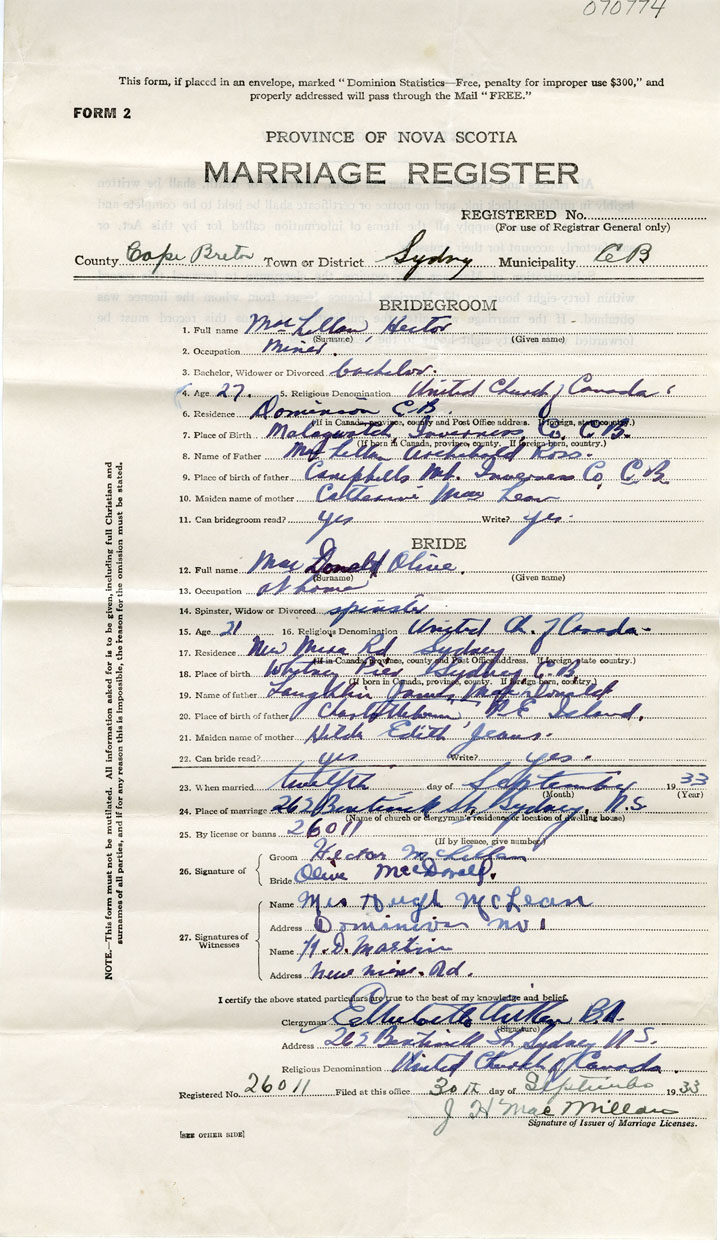 070774
This form, if placed in an envelope, marked "Dominion Statistics—Free, penalty for improper use $300," and
properly addressed will pass through the Mail "FREE."
FORM 2
PROVINCE OF NOVA SCOTIA
MARRIAGE REGISTER
REGISTERED No.
(For use of Registrar General only)
County Cape Breton Town or District Sydney Municipality C B
BRIDEGROOM
1. Full name MacLellan Hector
(Surname) (Given name)
2. Occupation miner.
3. Bachelor, Widower or Divorced bachelor.
4. Age 27. 5. Religious Denomination United Church of Canada
6. Residence Dominion C.B.
(If in Canada, province, county and Post Office address. If foreign, state country.)
7. Place of Birth Malagwatch, Inverness Co. C.B.
(If born in Canada, province, county. If foreign-born, country.)
8. Name of Father MacLellan Archibald Ross.
9. Place of birth of father Campbells Mt. Inverness Co, C.B.
10. Maiden name of mother Catherine MacLean
11. Can bridegroom read? yes Write? yes.
BRIDE
12. Full name MacDonald Olive.
(Surname) (Given name)
13. Occupation at home
14. Spinster, Widow or Divorced spinster
15. Age 21 16. Religious Denomination United Ch. of Canada
17. Residence New Mira Rd Sydney
(If in Canada, province, county and Post Office address. If foreign, state country.)
18. Place of birth Whitney Pier Sydney C.B.
(If born in Canada, province, county. If foreign-born, country.)
19. Name of father Laughlin James MacDonald
20. Place of birth of father P.E. Island.
21. Maiden name of mother Hilda Edith Jeans.
22. Can bride read? yes Write? yes.
23. When married twelfth day of September 1933
(Month) (Year)
24. Place of marriage 265 Bentinck St, Sydney, N.S
(Name of church or clergyman's residence or location of dwelling house)
25. By license or banns 26011
(If by licence, give number)
26. Signature of Groom Hector McLellan
Bride Olive MacDonald.
27. Signatures of Witnesses Name Mrs Hugh McLean
Address Dominion No 1
Name H. D. Martin
Address New mira. Rd.
I certify the above stated particulars are true to the best of my knowledge and belief.
Clergyman B.A.
(Signature)
Address 265 Bentinck St, Sydney N S.
Religious Denomination United Church of Canada.
Registered No. 26011 Filed at this office 30th day of September 1933
J H MacMillan
Signature of Issuer of Marriage Licenses.
[SEE OTHER SIDE]
NOTE.—This form must not be mutilated. All information asked for is to be given, including full Christian and
surnames of all parties, and if for any reason this is impossible, the reason for the omission must be stated.